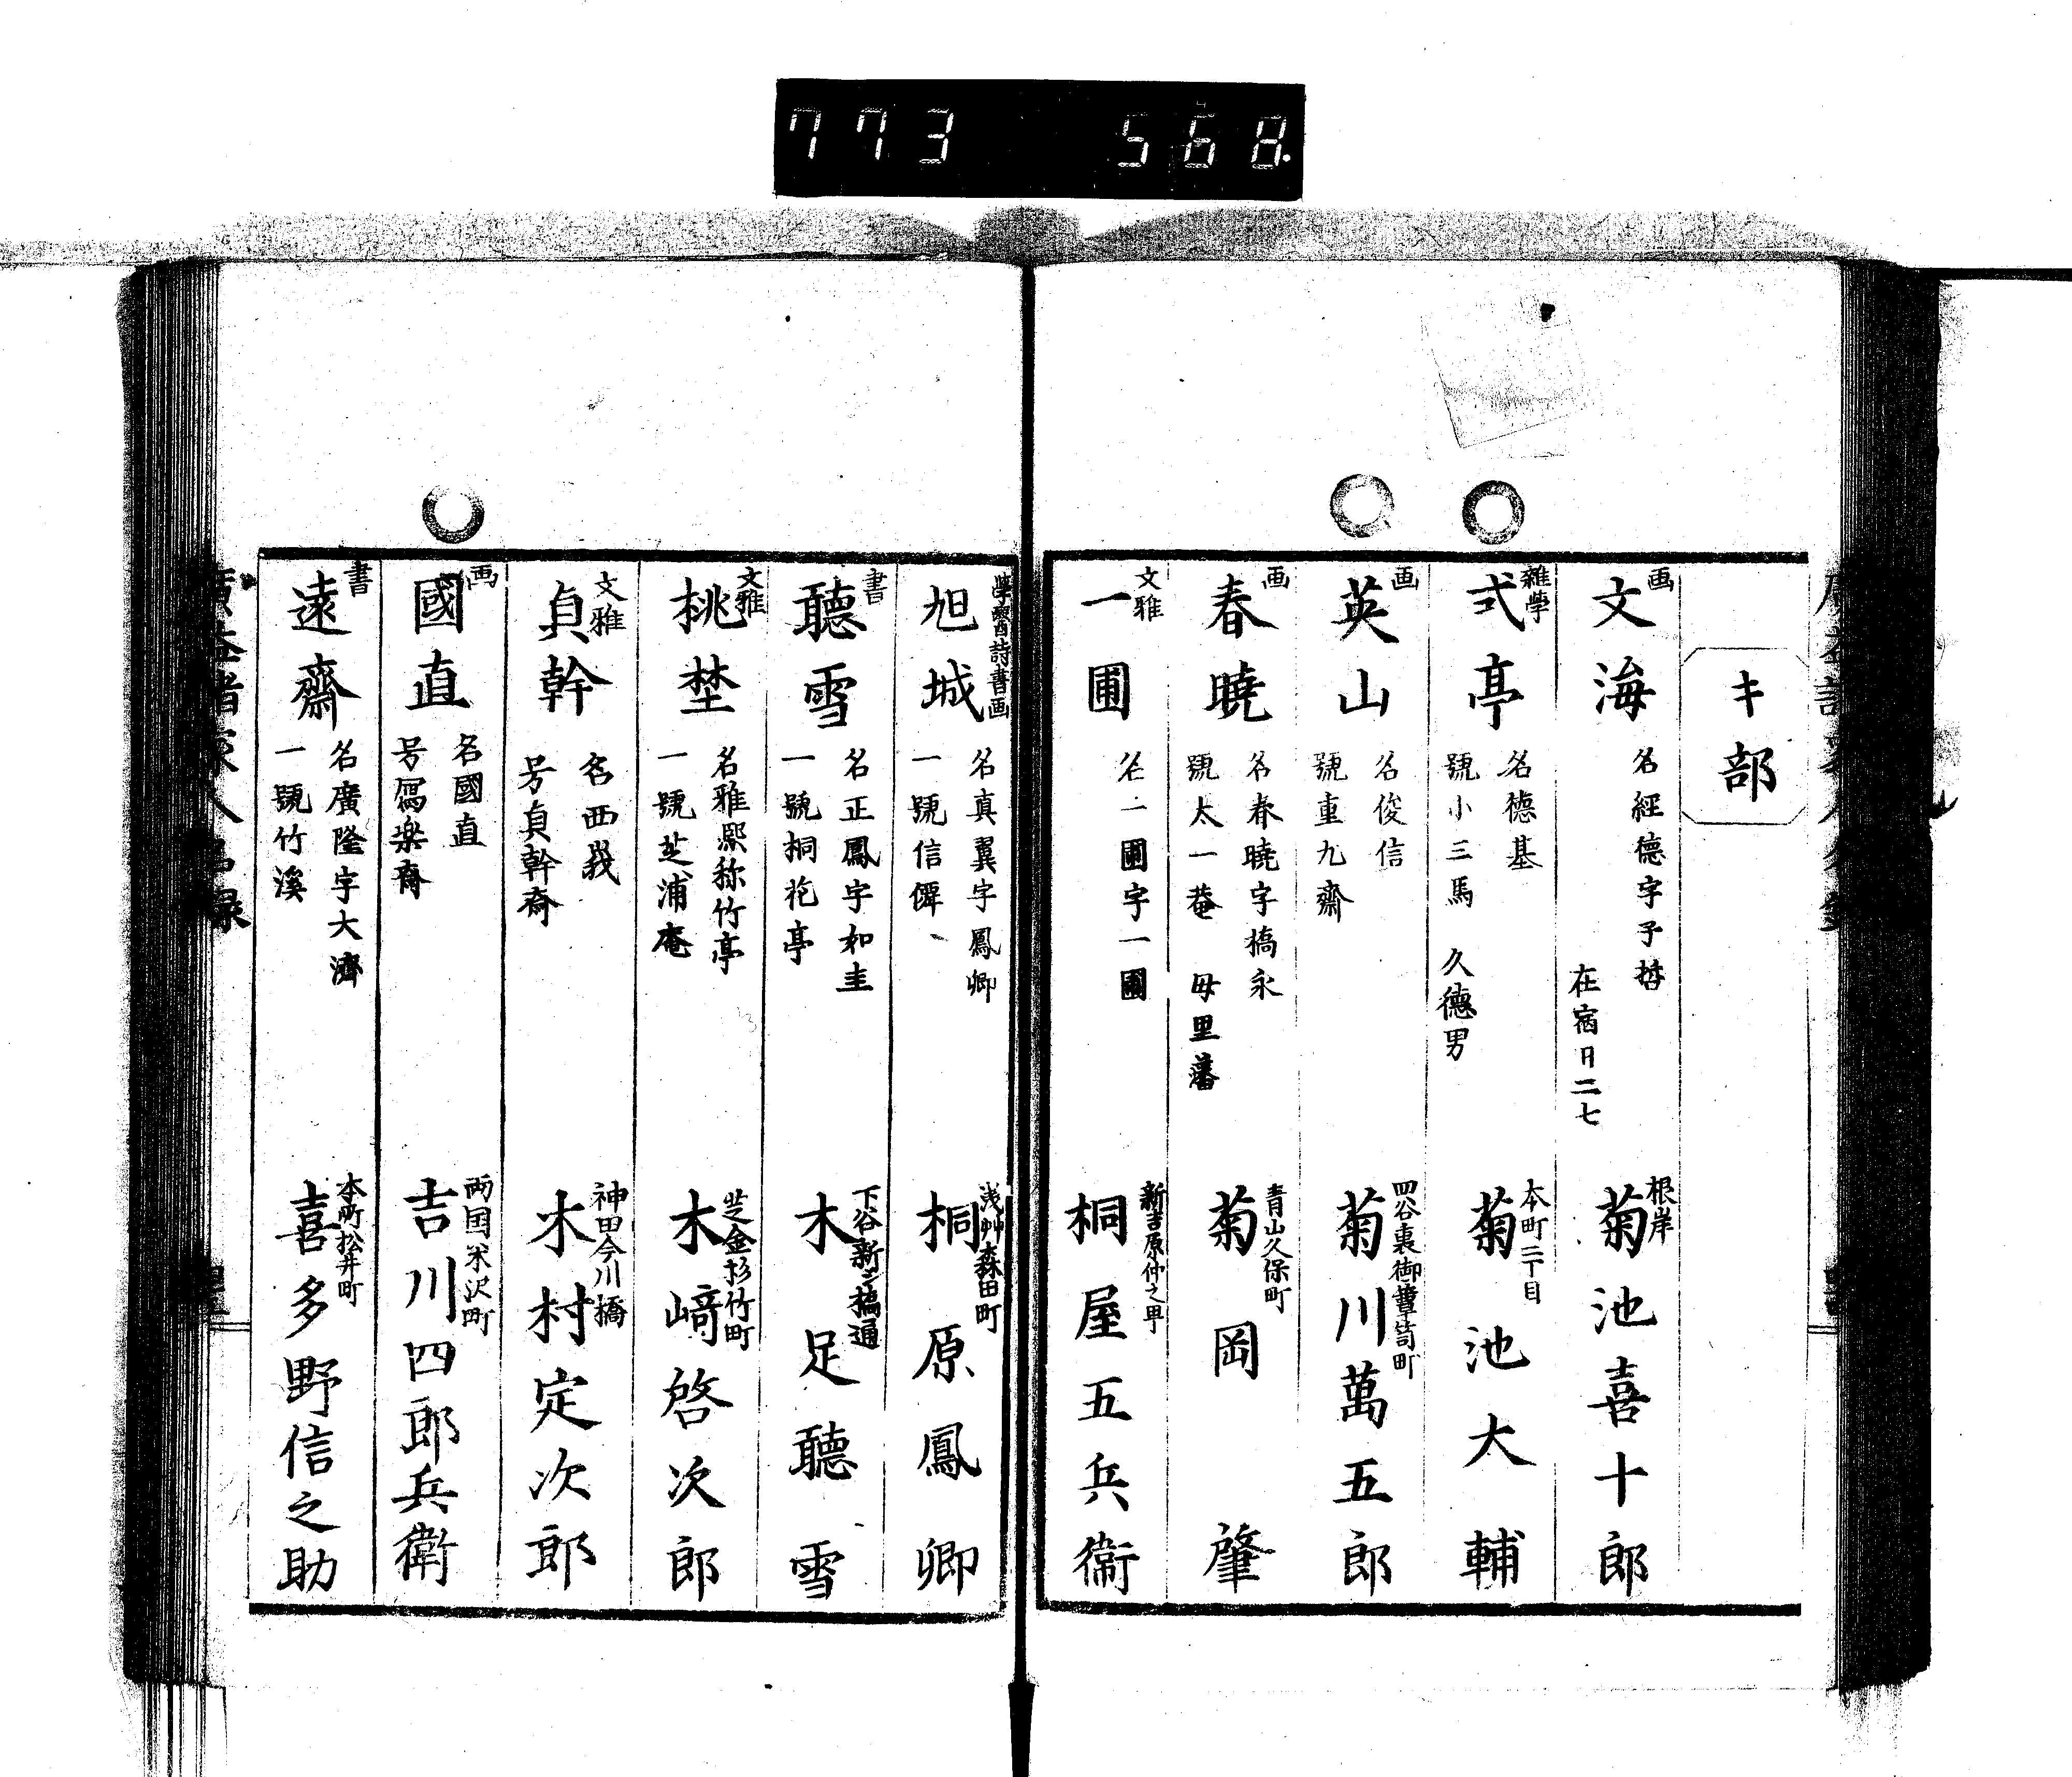 773 568.
キ部
画
文海
名經德字子哲
在宿日二七
根岸
菊池喜十郎
雜學
式亭
名德基
號小三馬 久德男
本町二丁目
菊池大輔
画
英山
名俊信
號重九齋
四谷裏御簞笥町
菊川萬五郎
画
春曉
名春曉字橋永
號太一菴 母里藩
青山久保町
菊岡肇
文雅
一圃
名一圃字一圃
新吉原仲之町
桐屋五兵衞
學醫詩書画
旭城
名真翼字鳳卿
一號信僊
浅艸森田町
桐原鳳卿
書
聽雪
名正鳳字如圭
一號桐花亭
下谷新シ橋通
木足聽雪
文雅
桃埜
名雅熈称竹亭
一號芝浦庵
芝金杉竹町
木﨑啓次郎
文雅
貞幹
名西峩
号貞幹斎
神田今川橋
木村定次郎
画
國直
名國直
号寫楽斎
両国米沢町
吉川四郎兵衛
書
遠齋
名廣隆字大濟
一號竹溪
本所松井町
喜多野信之助
廣益諸家人名録